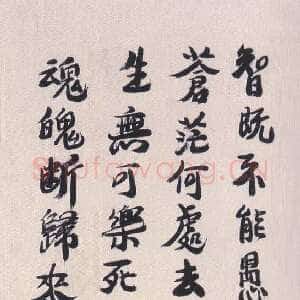 智既不能愚
蒼茫何處去
生無可樂死
魂魄斷歸來
Shufawang.cn